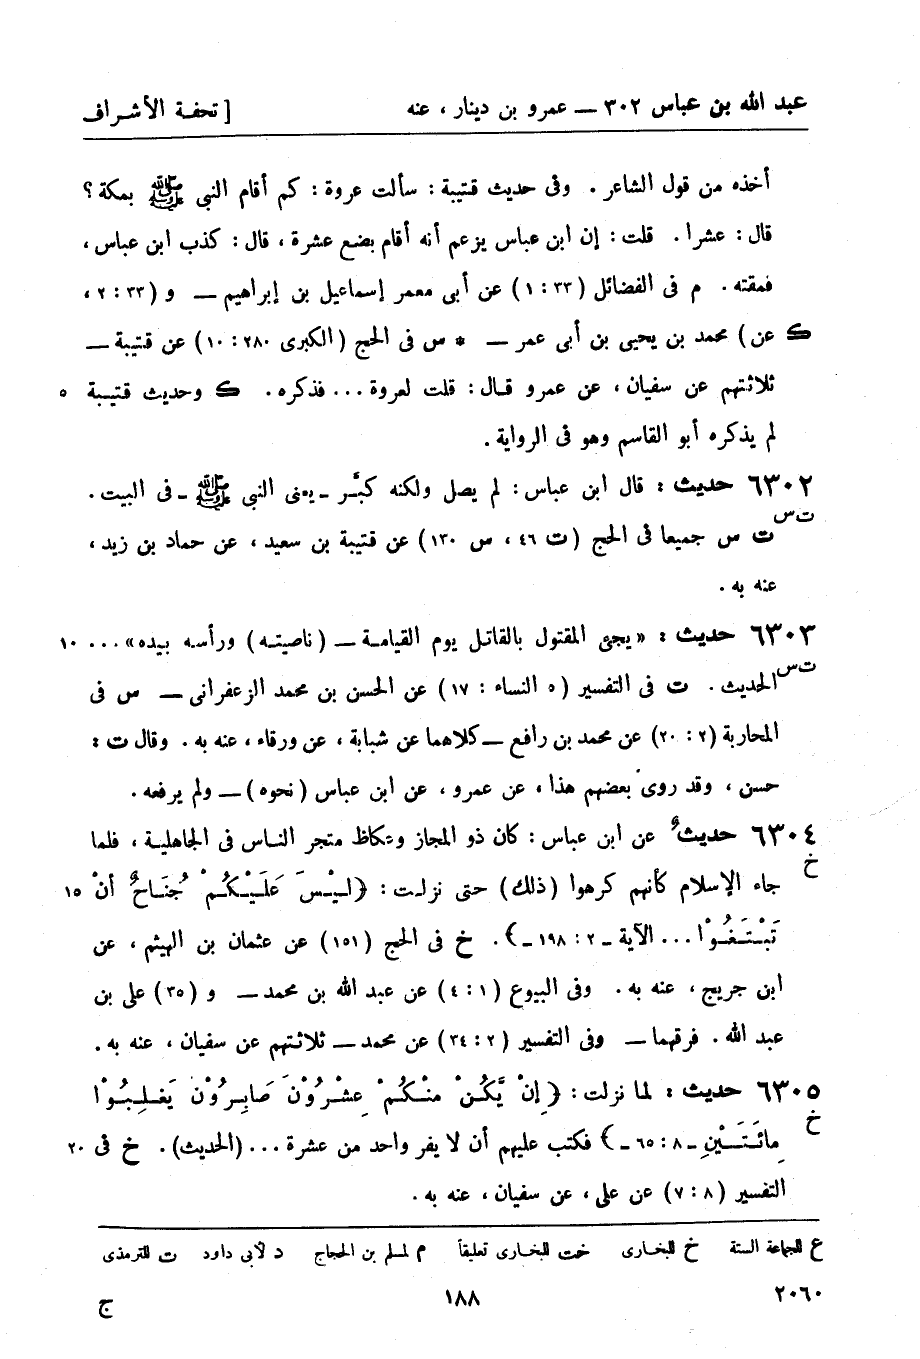 عبد الله بن عباس ٣٠٢ — عمرو بن دينار ، عنه [ تحفة الأشراف
أخذه من قول الشاعر . وفى حديث قتيبة : سألت عروة : كم أقام النبى ﷺ بمكة ؟
قال : عشرا . قلت : إن ابن عباس يزعم أنه أقام بضع عشرة ، قال : كذب ابن عباس ،
فمقته . م فى الفضائل ( ٣٣ : ١ ) عن أبى معمر إسماعيل بن إبراهيم — و ( ٣٣ : ٢ ،
ك عن ) محمد بن يحيى بن أبى عمر — * س فى الحج ( الكبرى ٢٨٠ : ١٠ ) عن قتيبة —
ثلاثتهم عن سفيان ، عن عمرو قال : قلت لعروة ... فذكره . ك وحديث قتيبة ٥
لم يذكره أبو القاسم وهو فى الرواية .
٦٣٠٢ حديث : قال ابن عباس : لم يصل ولكنه كبَّر ـ يعنى النبى ﷺ ـ فى البيت .
ت س
ت س جميعا فى الحج ( ت ٤٦ ، س ١٣٠ ) عن قتيبة بن سعيد ، عن حماد بن زيد ،
عنه به .
٦٣٠٣ حديث : « يجئ المقتول بالقاتل يوم القيامة — ( ناصيته ) ورأسه بيده» ... ١٠
ت س
الحديث . ت فى التفسير ( ٥ النساء : ١٧ ) عن الحسن بن محمد الزعفرانى — س فى
المحاربة ( ٢ : ٢٠ ) عن محمد بن رافع — كلاهما عن شبابة ، عن ورقاء ، عنه به . وقال ت :
حسن ، وقد روى بعضهم هذا ، عن عمرو ، عن ابن عباس ( نحوه ) — ولم يرفعه .
٦٣٠٤ حديثٌ عن ابن عباس : كان ذو المجاز وعكاظ متجر الناس فى الجاهلية ، فلما
خ
جاء الإسلام كأنهم كرهوا ( ذلك ) حتى نزلت : ﴿ لَيْسَ عَلَيْكُمْ جُنَاحٌ أَنْ ١٥
تَبْتَغُوْا ... الآية ـ ٢ : ١٩٨ ـ ﴾ . خ فى الحج ( ١٥١ ) عن عثمان بن الهيثم ، عن
ابن جريج ، عنه به . وفى البيوع ( ١ : ٤ ) عن عبد الله بن محمد — و ( ٣٥ ) على بن
عبد الله . فرقهما — وفى التفسير ( ٢ : ٣٤ ) عن محمد — ثلاثتهم عن سفيان ، عنه به .
٦٣٠٥ حديث : لما نزلت : ﴿ إِنْ يَّكُنْ مِنْكُمْ عِشْرُوْنَ صَابِرُوْنَ يَغْلِبُوْا
خ
مِائَتَيْنِ ـ ٨ : ٦٥ ـ ﴾ فكتب عليهم أن لا يفر واحد من عشرة ... (الحديث) . خ فى ٢٠
التفسير ( ٨ : ٧ ) عن على ، عن سفيان ، عنه به .
ع للجماعة الستة خ للبخارى خت للبخارى تعليقاً م لمسلم بن الحجاج د لأبى داود ت للترمذى
٢٠٦٠ ١٨٨ ج